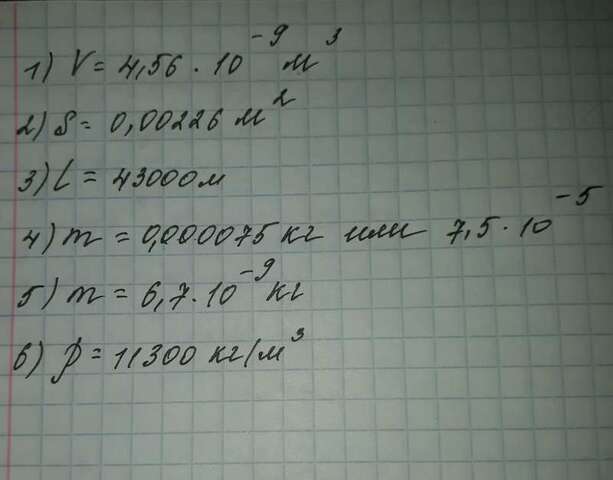 1) V = 4,56 · 10⁻⁹ м³
2) S = 0,00226 м²
3) L = 43000 м
4) m = 0,000075 кг или 7,5 · 10⁻⁵
5) m = 6,7 · 10⁻⁹ кг
6) ρ = 11300 кг/м³